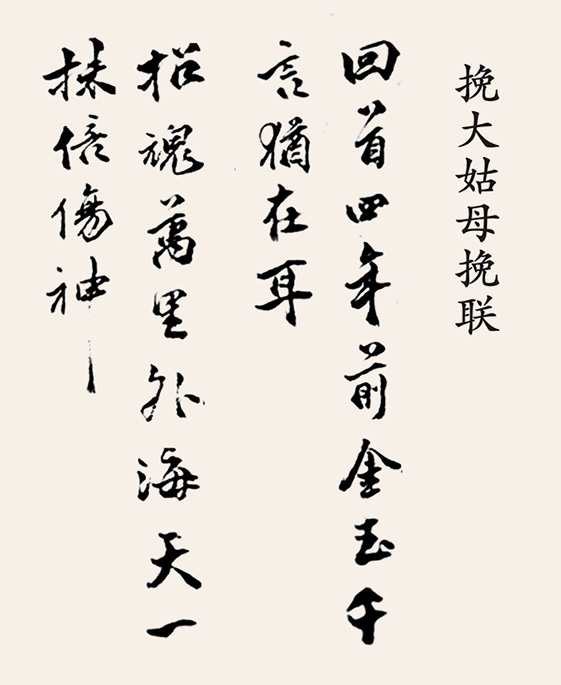 挽大姑母挽联
回首四年前金玉千
言猶在耳
招魂萬里外海天一
抹倍傷神